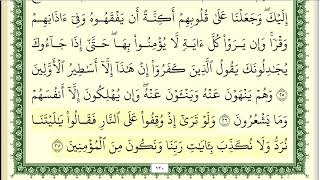 إِلَيْكَ ۖ وَجَعَلْنَا عَلَىٰ قُلُوبِهِمْ أَكِنَّةً أَن يَفْقَهُوهُ وَفِىٓ ءَاذَانِهِمْ
وَقْرًا ۚ وَإِن يَرَوْا۟ كُلَّ ءَايَةٍ لَّا يُؤْمِنُوا۟ بِهَا ۚ حَتَّىٰٓ إِذَا جَآءُوكَ
يُجَـٰدِلُونَكَ يَقُولُ ٱلَّذِينَ كَفَرُوٓا۟ إِنْ هَـٰذَآ إِلَّآ أَسَـٰطِيرُ ٱلْأَوَّلِينَ
٢٥ وَهُمْ يَنْهَوْنَ عَنْهُ وَيَنْـَٔوْنَ عَنْهُ ۖ وَإِن يُهْلِكُونَ إِلَّآ أَنفُسَهُمْ
وَمَا يَشْعُرُونَ ٢٦ وَلَوْ تَرَىٰٓ إِذْ وُقِفُوا۟ عَلَى ٱلنَّارِ فَقَالُوا۟ يَـٰلَيْتَنَا
نُرَدُّ وَلَا نُكَذِّبَ بِـَٔايَـٰتِ رَبِّنَا وَنَكُونَ مِنَ ٱلْمُؤْمِنِينَ ٢٧
١٣٠